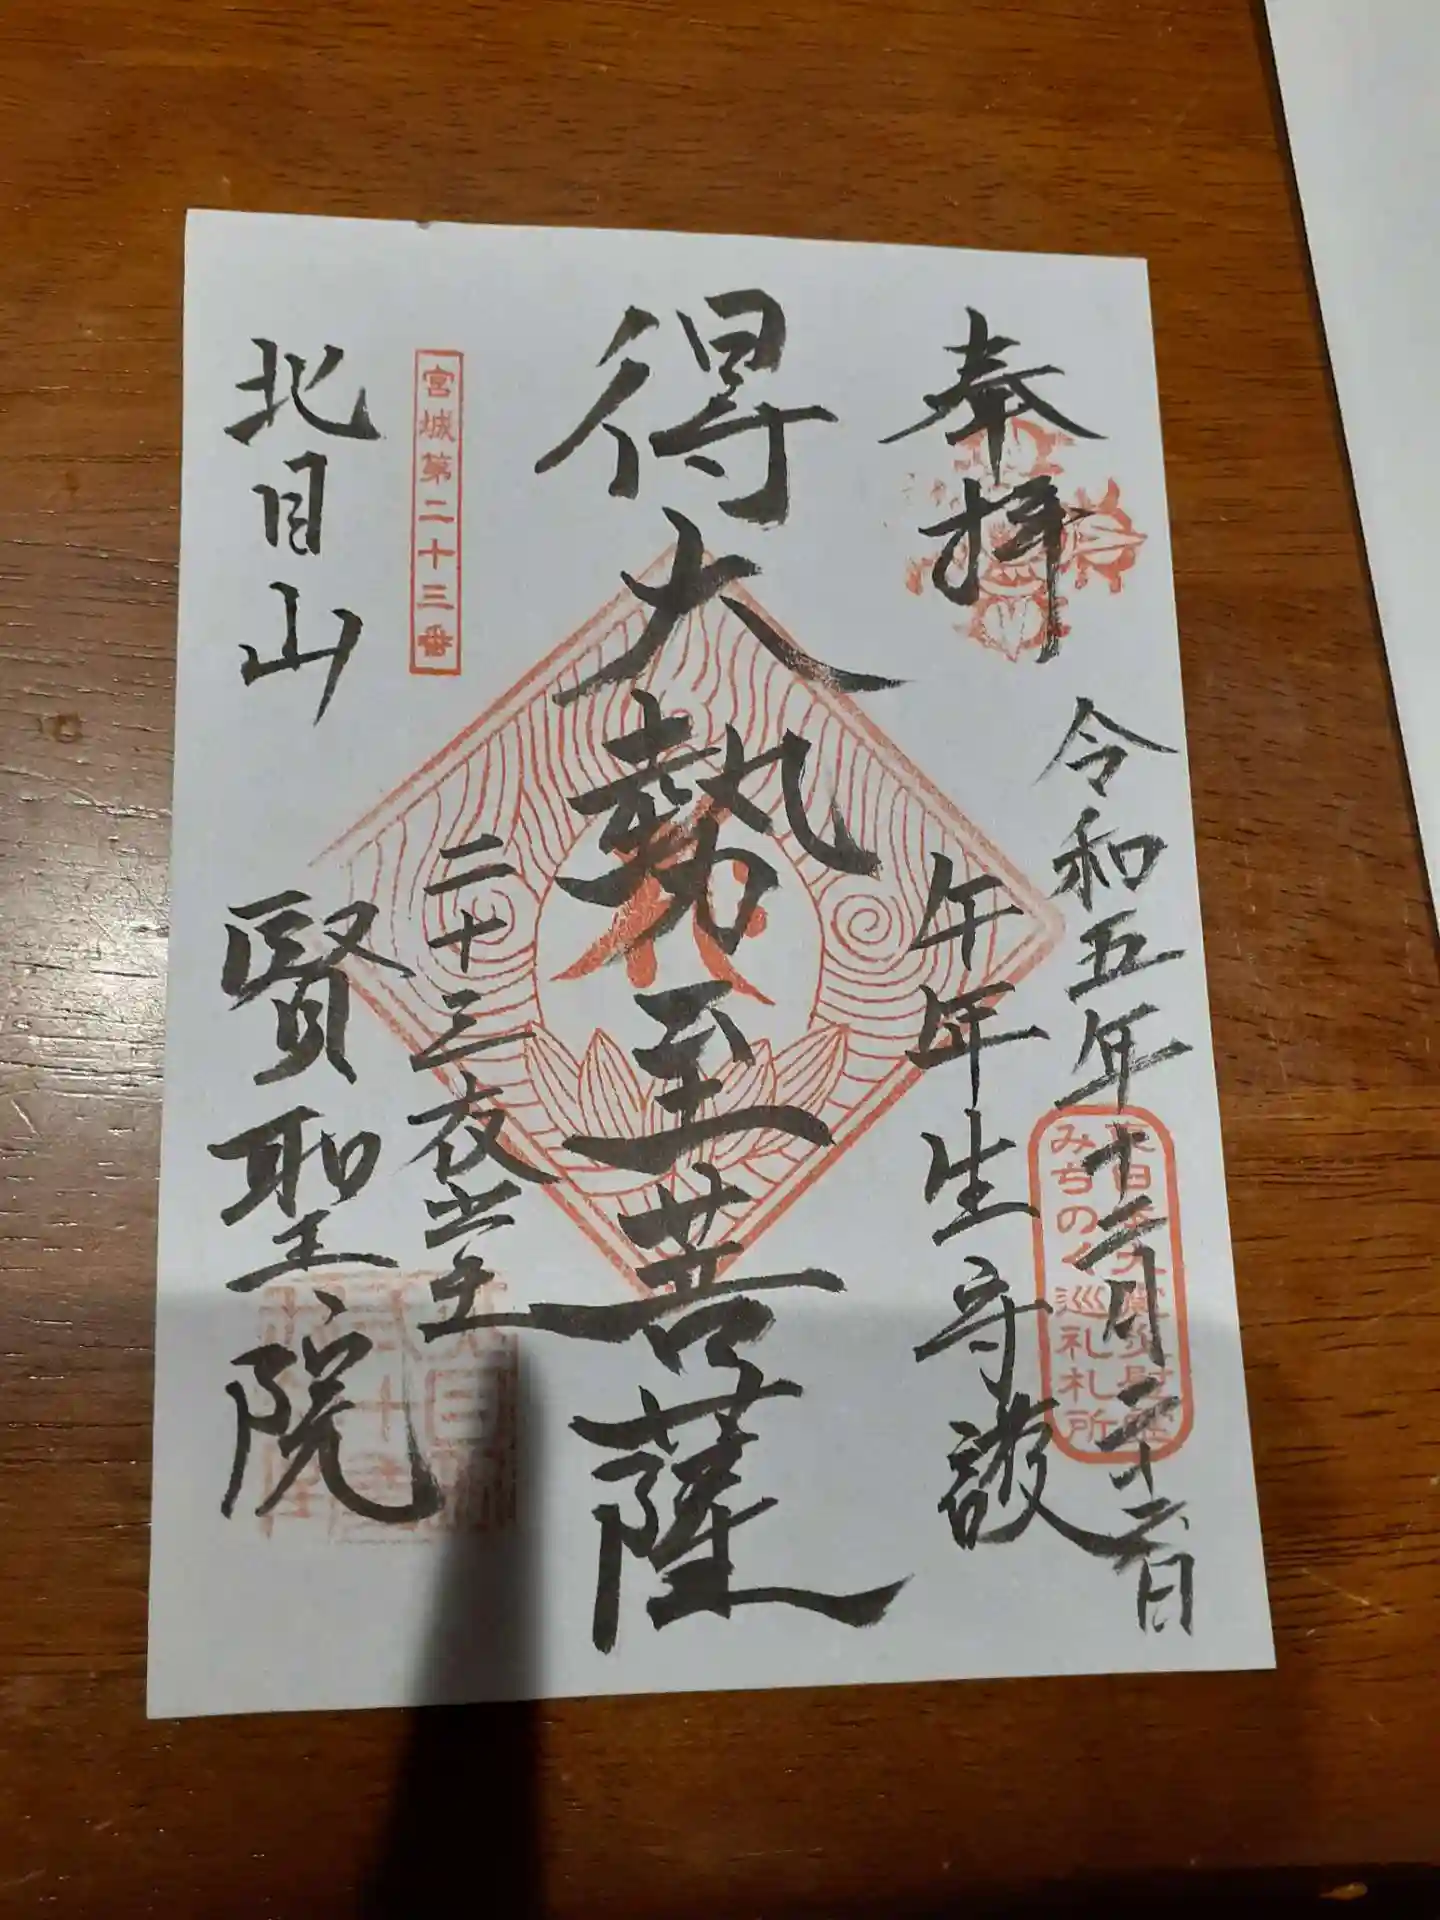 奉拝
令和五年十二月二十六日
午年生守護
みちのく巡礼札所
得大勢至菩薩
宮城第二十三番
二十三夜堂
北目山
賢聖院